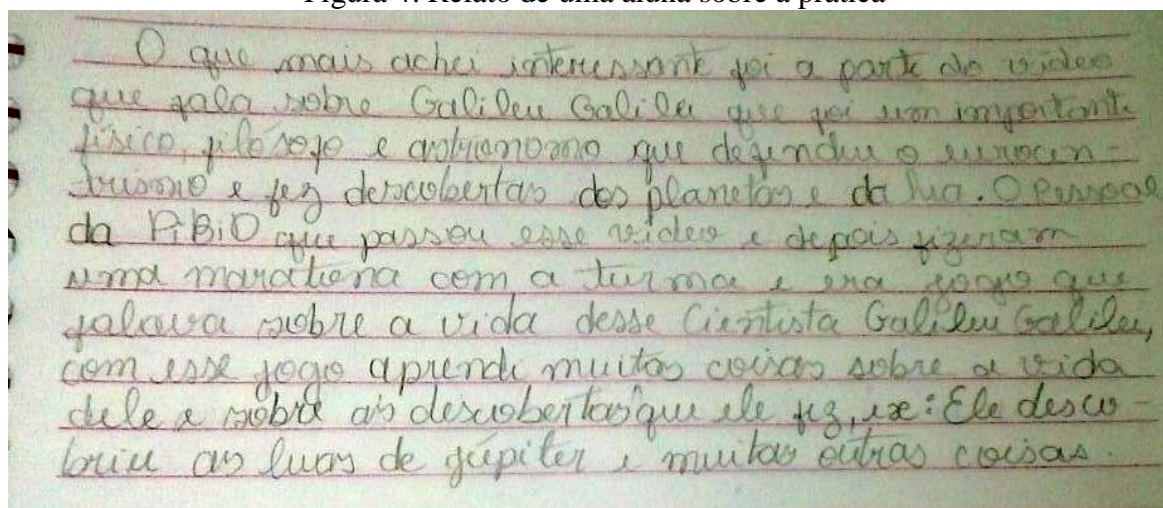 Figura 4: Relato de uma aluna sobre a prática
O que mais achei interessante foi a parte do video
que fala sobre Galileu Galilei que foi um importante
físico, filósofo e astronomo que defendeu o eurocen-
trismo e fez descobertas dos planetas e da lua. O Pessoal
da PiBiD que passou esse video e depois fizeram
uma maratona com a turma e era jogo que
falava sobre a vida desse Cientista Galileu Galilei,
com esse jogo aprendi muitas coisas sobre a vida
dele e sobre as descobertas que ele fez, ex: Ele desco-
briu as luas de júpiter e muitas outras coisas.